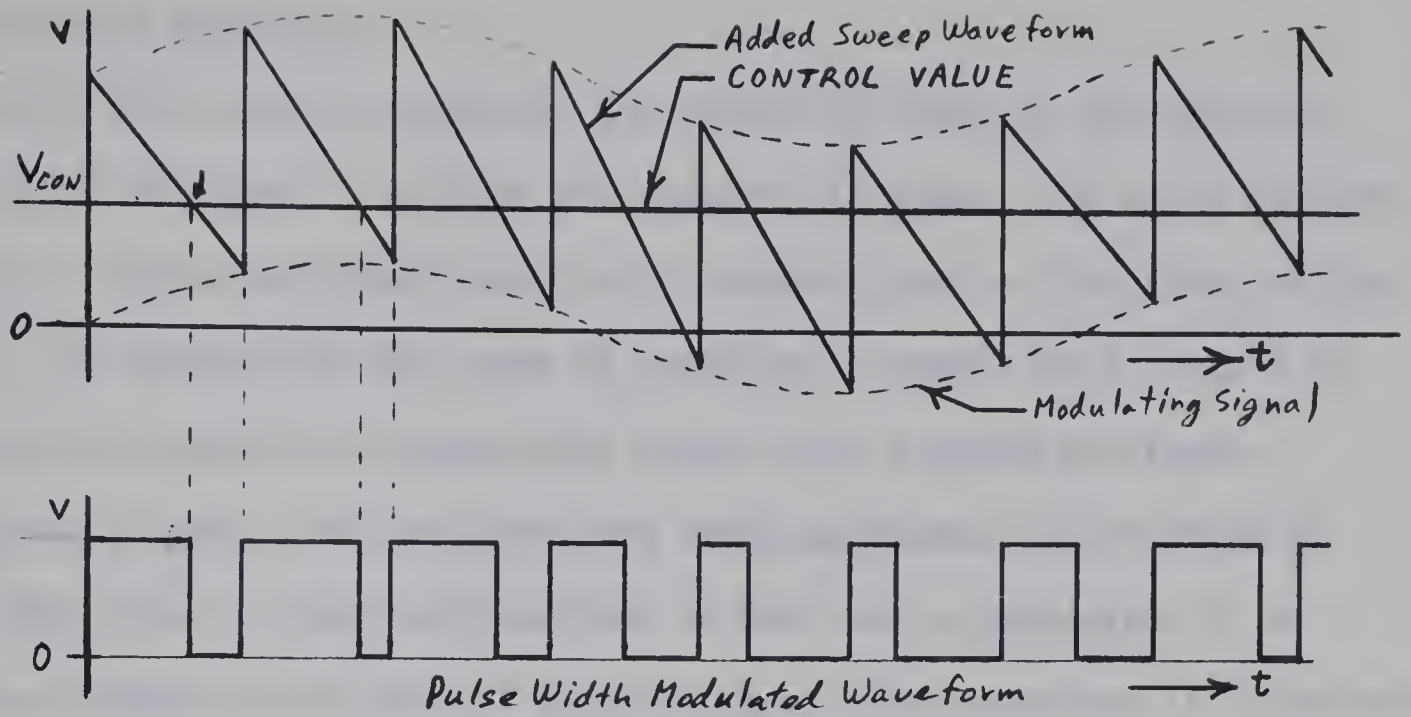 V
Added Sweep Waveform
CONTROL VALUE
VCON
0
t
Modulating Signal
V
0
Pulse Width Modulated Waveform
t